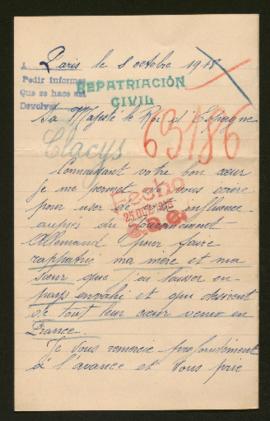 Paris le 8 octobre 1918
A
Pedir informes
Que se hace así
Devolver
REPATRIACIÓN
CIVIL
Sa Majesté le Roi d'Espagne
Clacys
63186
Connaissant votre bon cœur
je me permet de vous écrire
pour user de votre influence
auprès du gouvernement
Allemand pour faire
rapatrier ma mère et ma
sœur que j'ai laissées en
pays envahi et qui désirent
de tout leur cœur venir en
France.
Je vous remercie profondément
à l'avance et vous prie